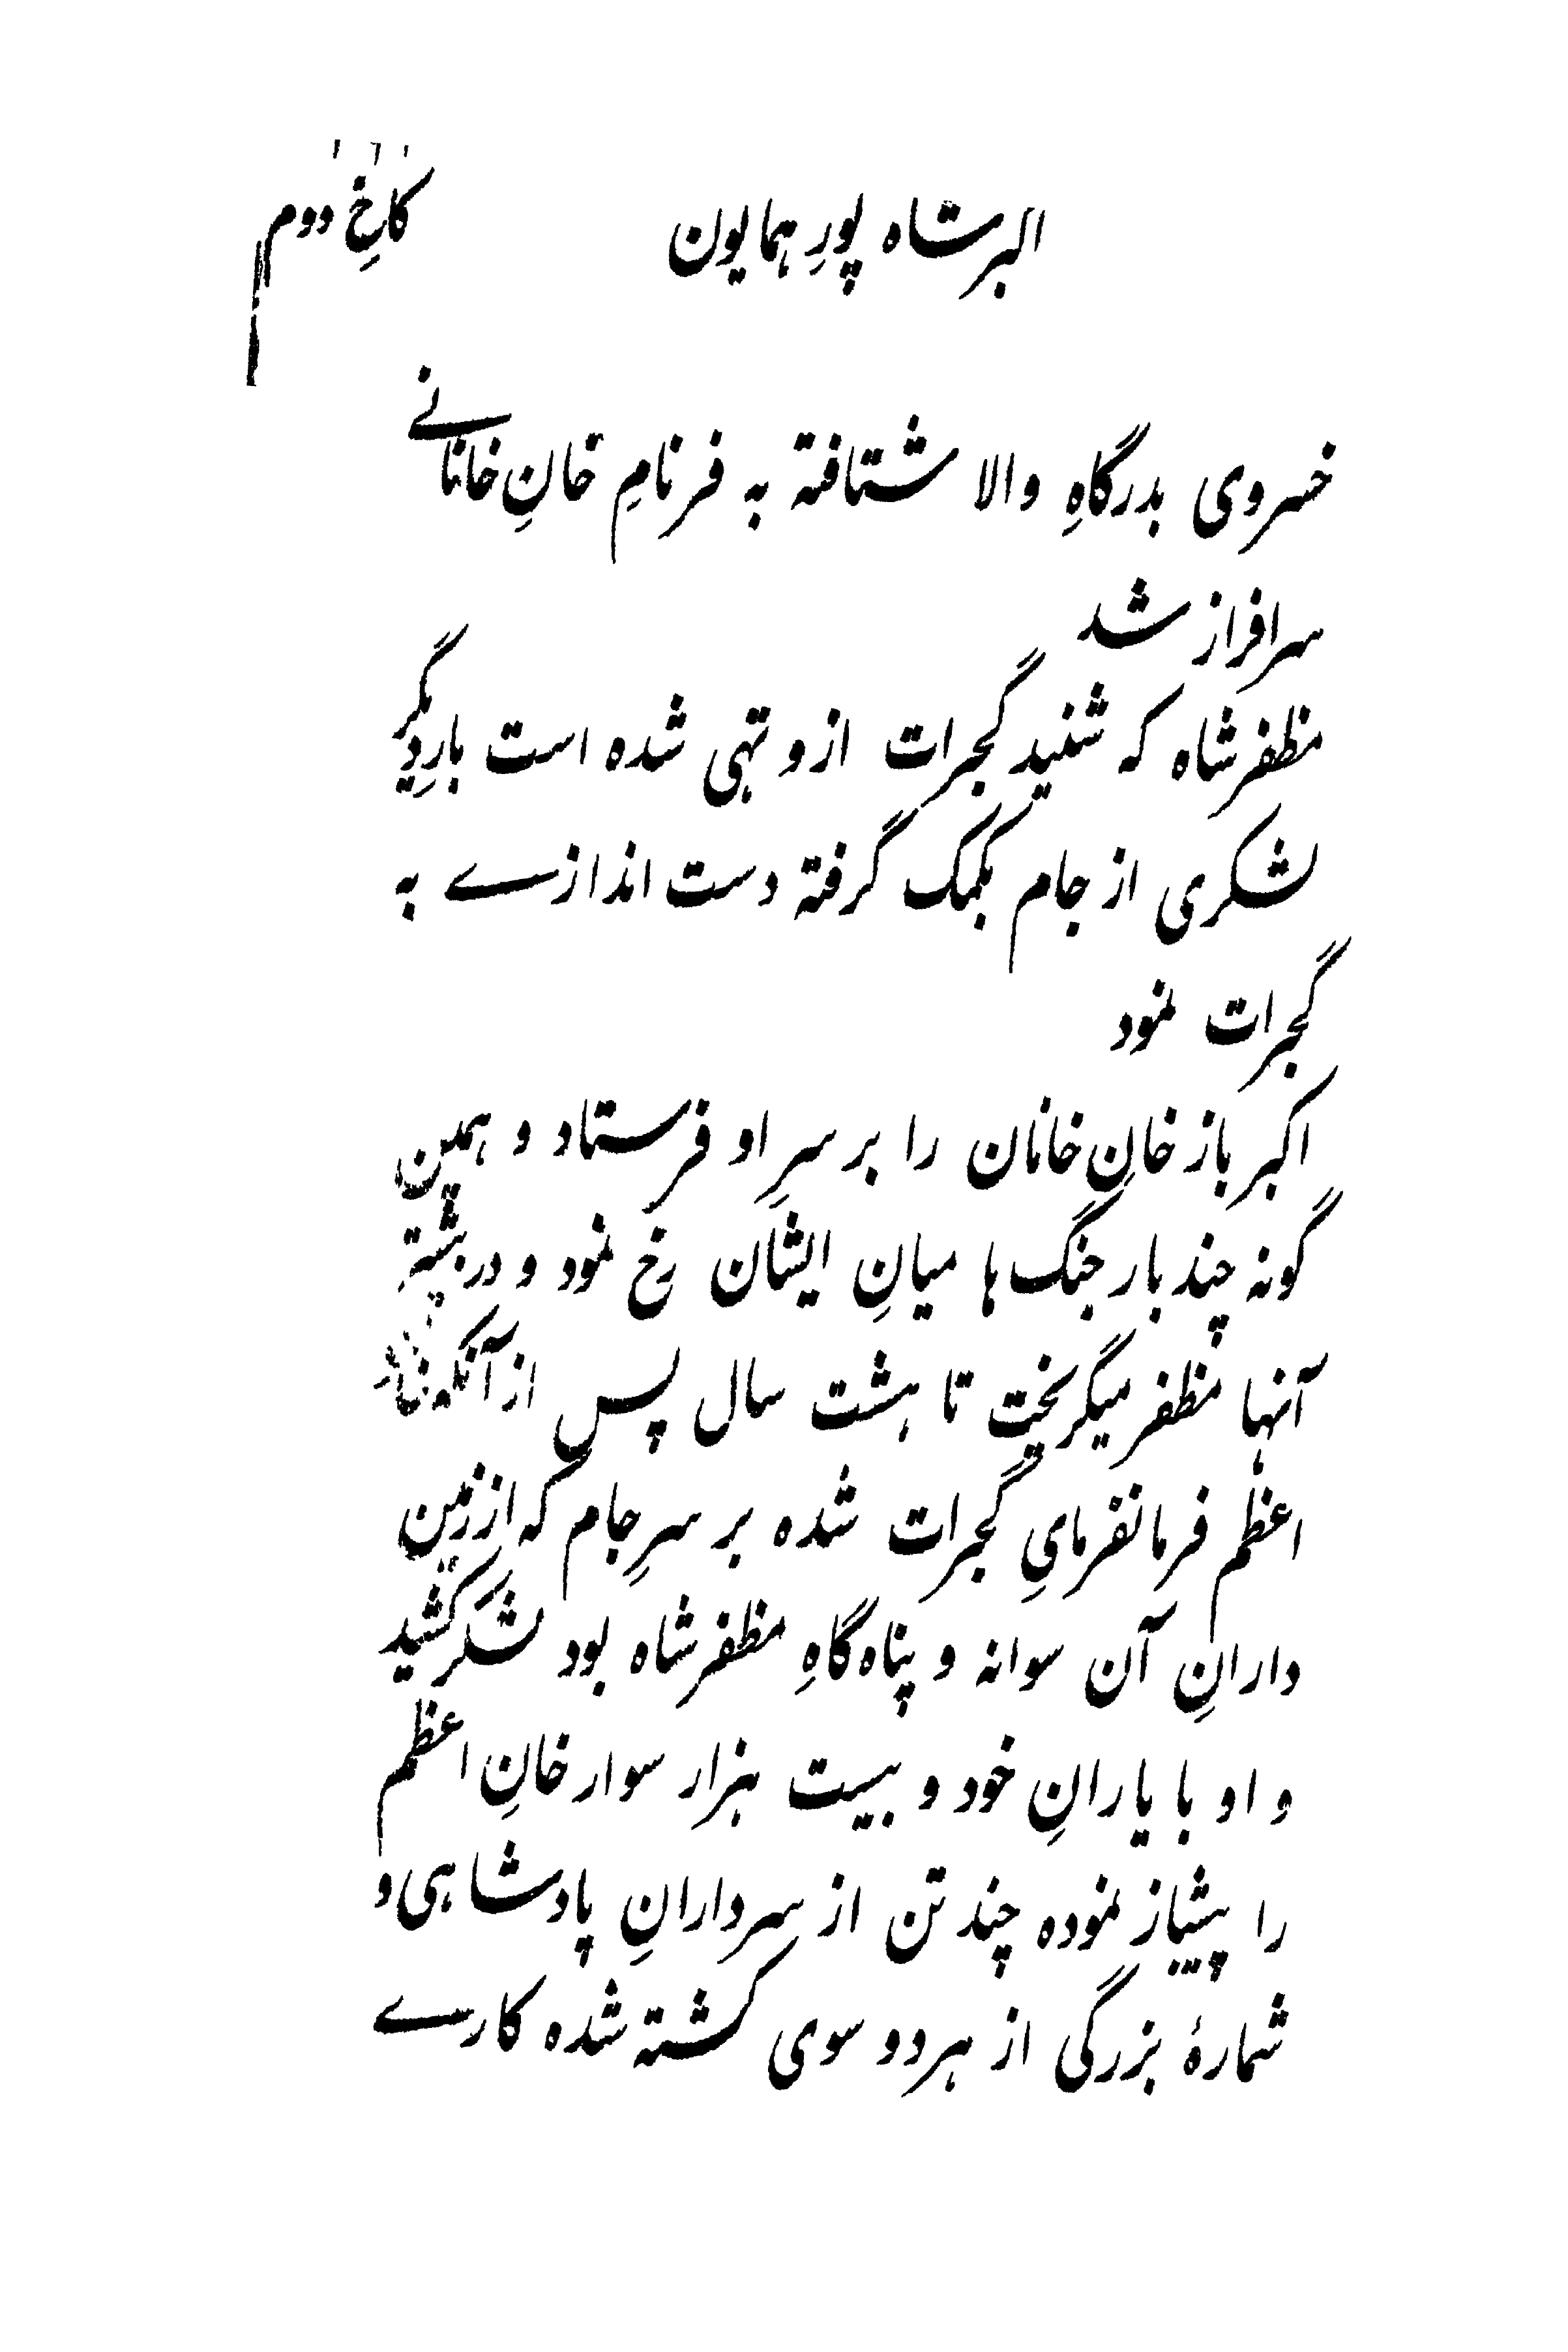 اکبر شاه پورِ همایون
کاخِ دوم
خسروی بدرگاهِ والا شتافته به فرنامِ خانِ خانانے
سرافراز شد
مظفر شاه که شنید گجرات ازو تهی شده است بارِ دیگر
لشکری از جام بکمک گرفته دست اندازے به
گجرات نمود
اکبر باز خانِ خانان را بر سرِ او فرستاد و همین
گونه چند بار جنگ ها میانِ ایشان رخ نمود و در
آنها مظفر میگریخت تا هشت سال پس از آنکه خان
اعظم فرمانفرمایِ گجرات شده بر سرِ جام که از زمین
دارانِ آن سوانه و پناه گاهِ مظفر شاه بود لشکر کشید
و او با یارانِ خود و بیست هزار سوار خانِ اعظم
را پیشباز نموده چند تن از سردارانِ پادشاهی و
شمارهٔ بزرگی از هر دو سوی کشته شده کارے